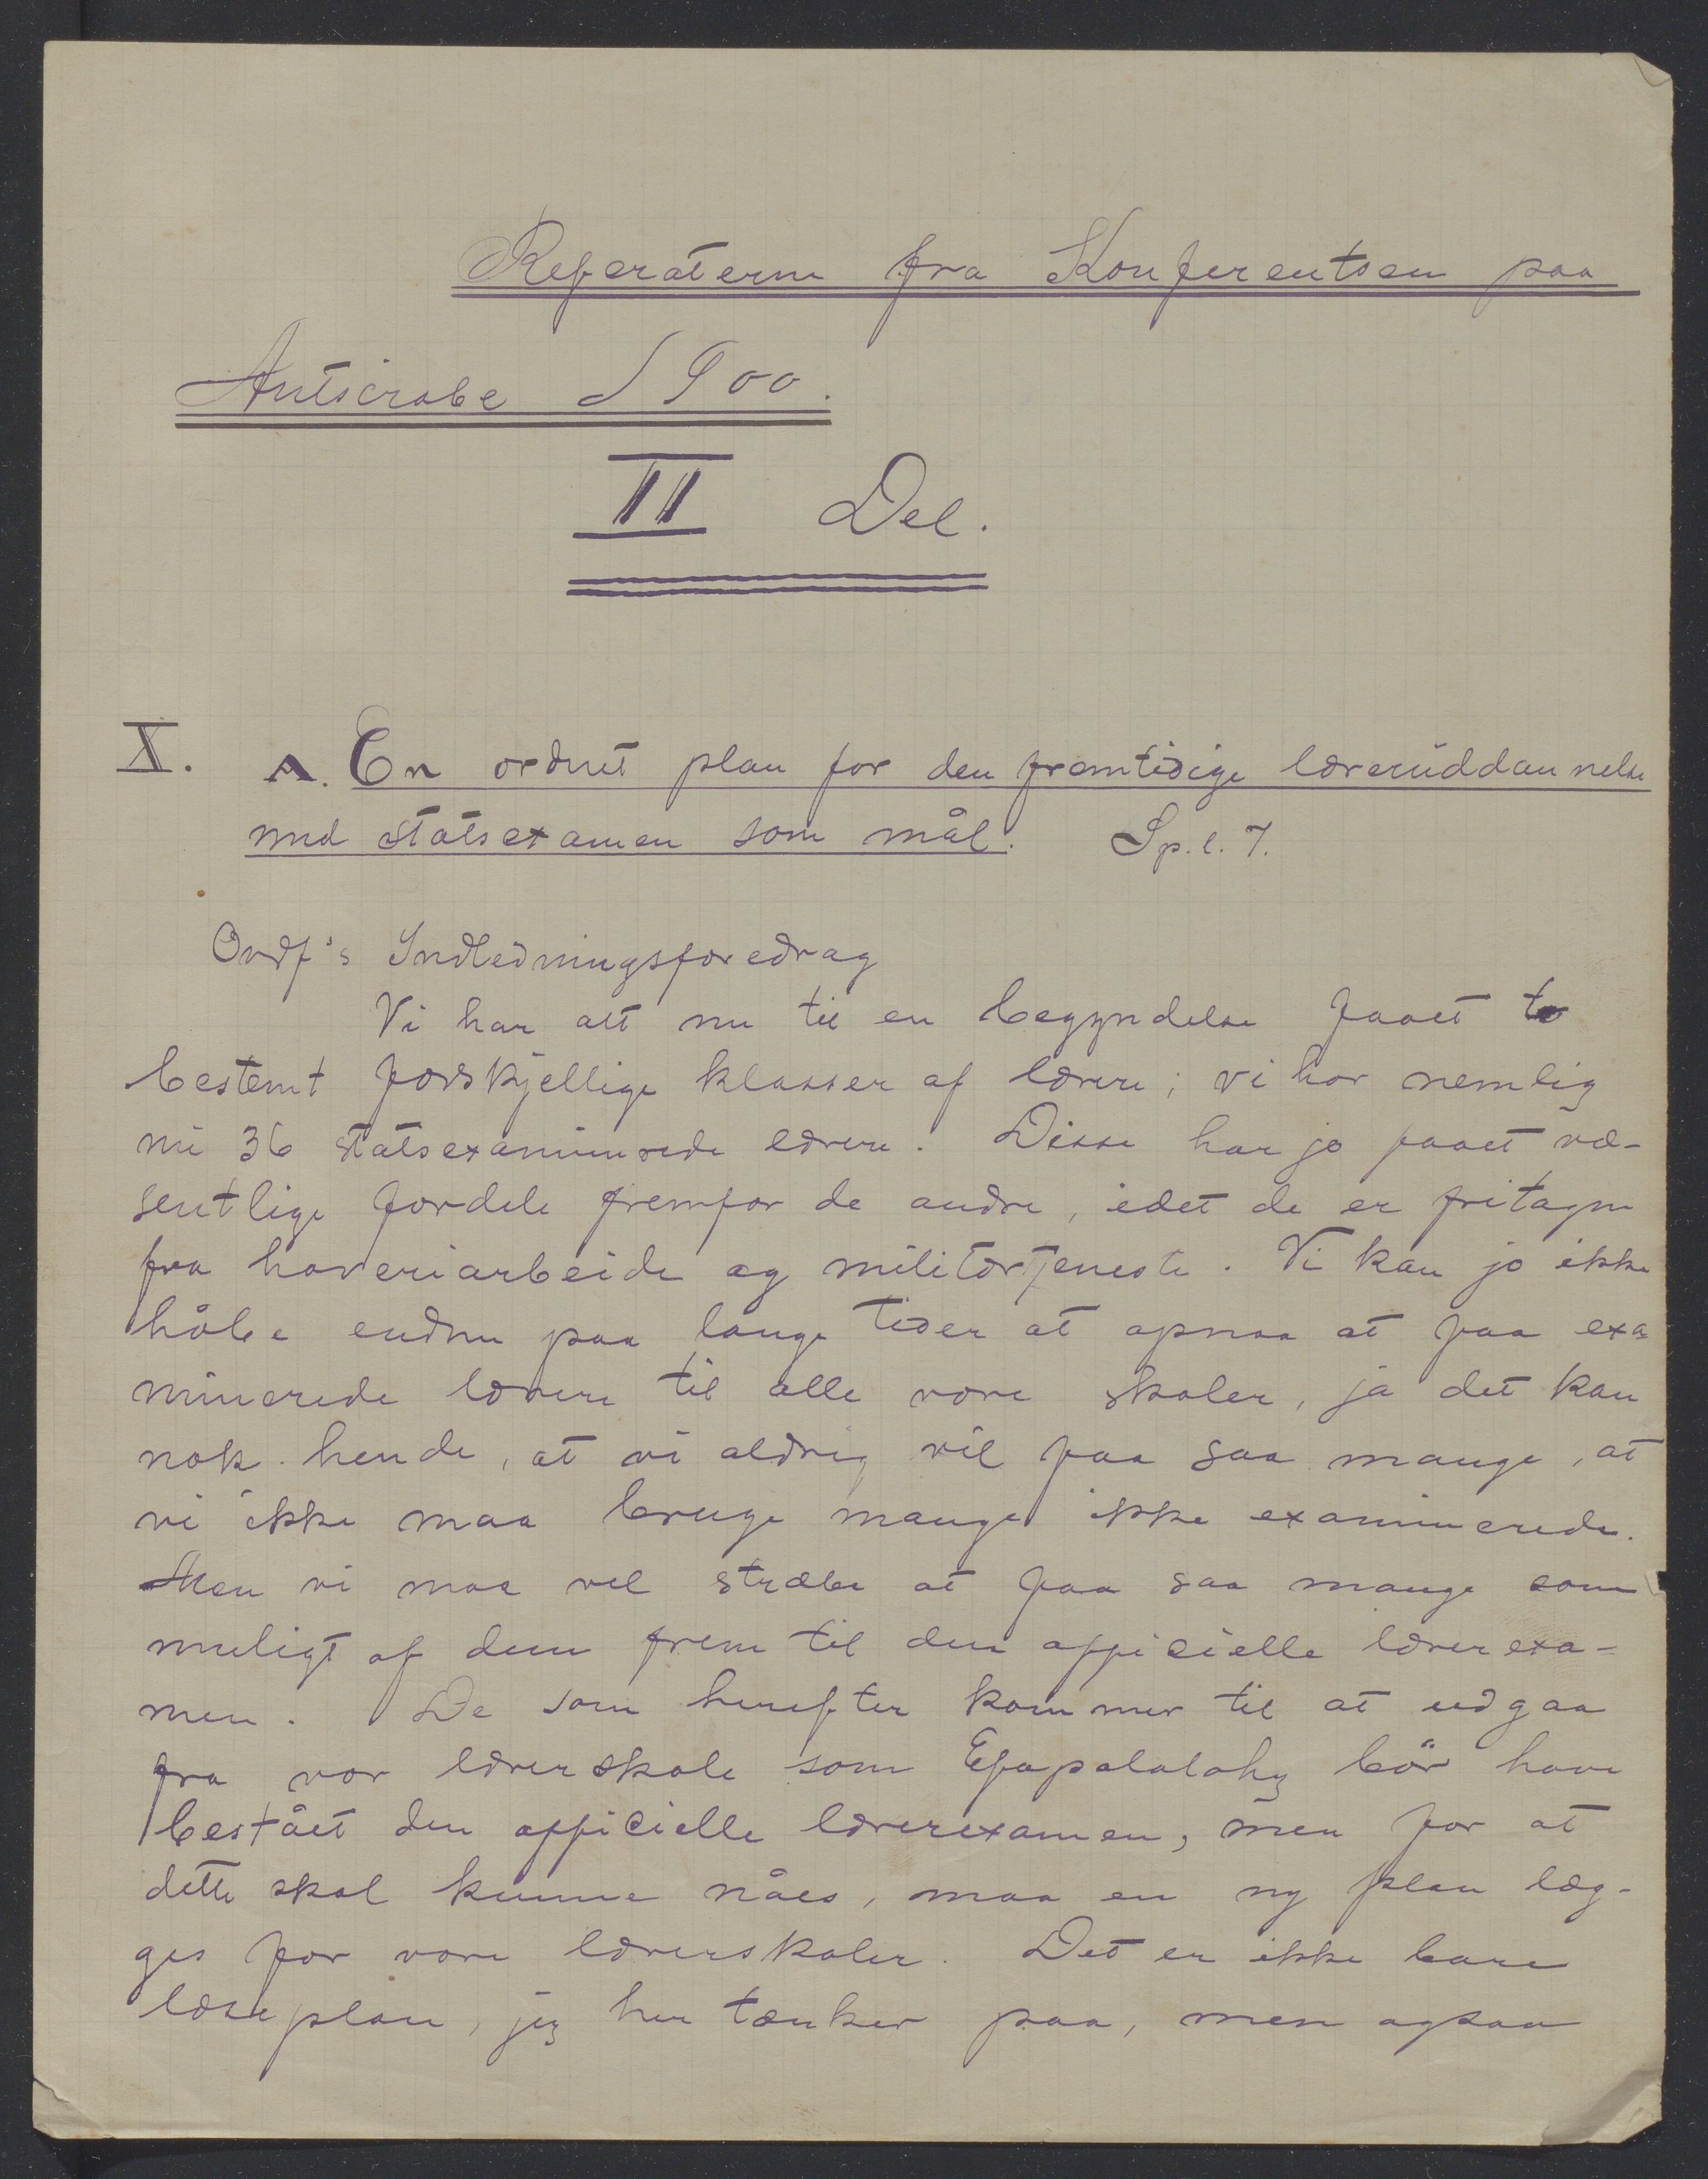 Referaterne fra Konferentsen paa
Antsirabe 1900.
II Del.
X. A. En ordnet plan for den fremtidige læreruddannelse
med statsexamen som mål. Sp.l. 7.
Ordf's Indledningsforedrag
Vi har alt nu til en begyndelse faaet to
bestemt forskjellige klasser af lærere; vi har nemlig
nu 36 statsexaminerede lærere. Disse har jo faaet væ-
sentlige fordele fremfor de andre, idet de er fritagne
fra hoveriarbeide og militærtjeneste. Vi kan jo ikke
håbe endnu paa lange tider at opnaa at faa exa-
minerede lærere til alle vore skoler, ja det kan
nok hende, at vi aldrig vil faa saa mange, at
vi ikke maa bruge mange ikke examinerede.
Men vi maa vel stræbe at faa saa mange som
muligt af dem frem til den officielle lærerexa-
men. De som herefter kommer til at udgaa
fra vor lærerskole som Efapalalahy bör have
bestået den officielle lærerexamen, men for at
dette skal kunne nåes, maa en ny plan læg-
ges for vore lærerskoler. Det er ikke bare
læseplan, jeg her tænker paa, men ogsaa